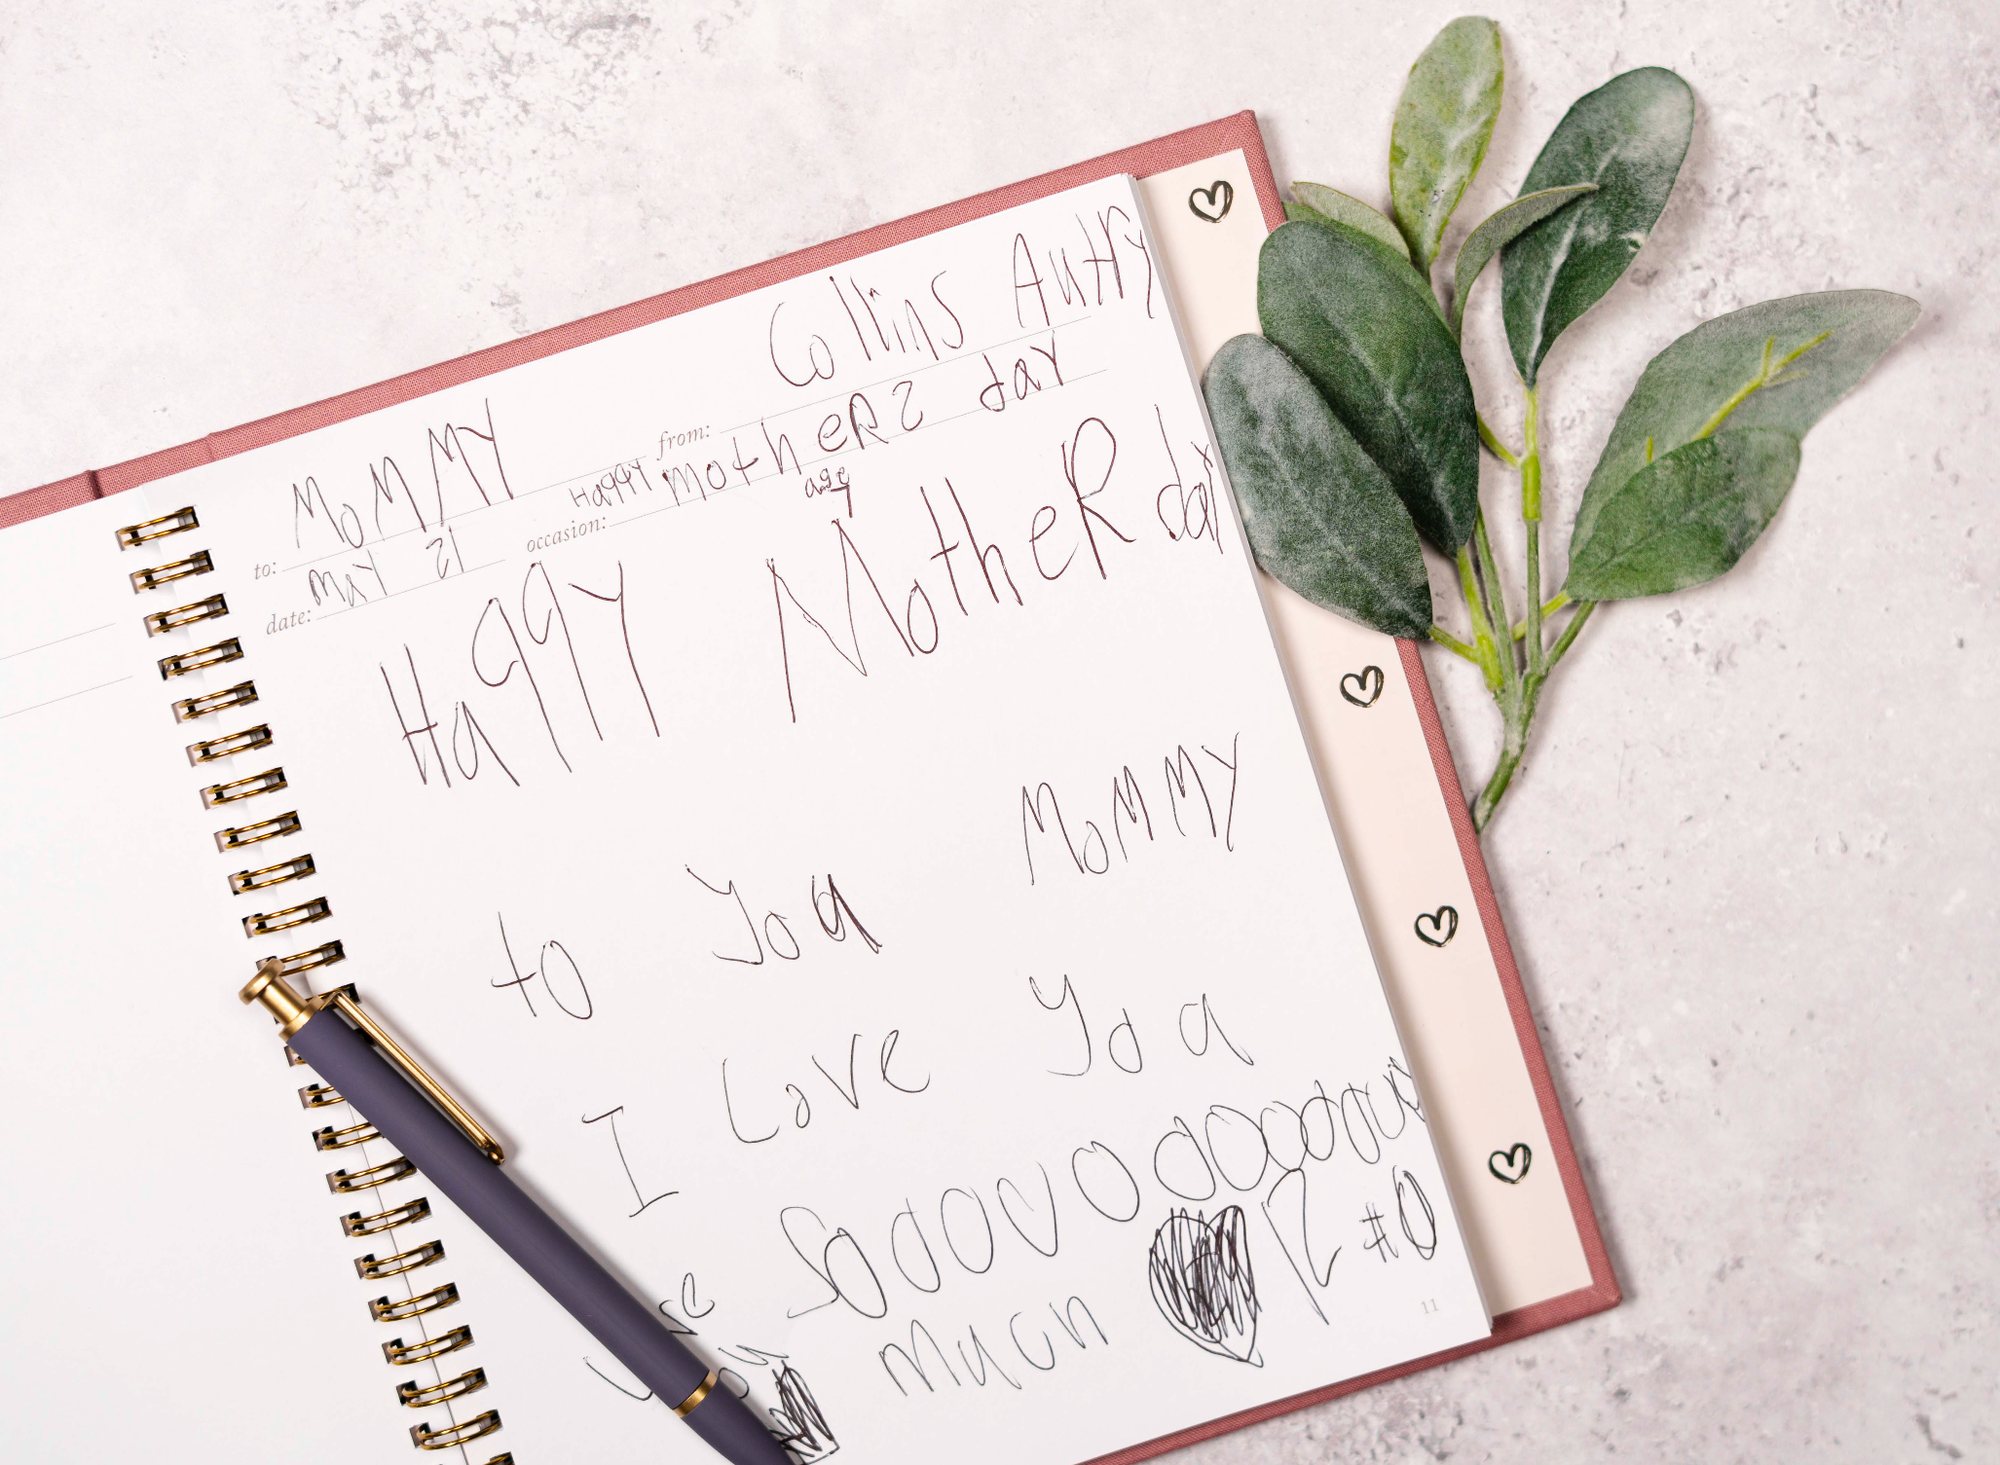 Collins Autry
to: MoMMY from:
date: May 21 occasion: Happy motheR2 day
age
Happy MotheR day
to You MoMMY
I Love You
Soooooooooooooo
much
#0
11